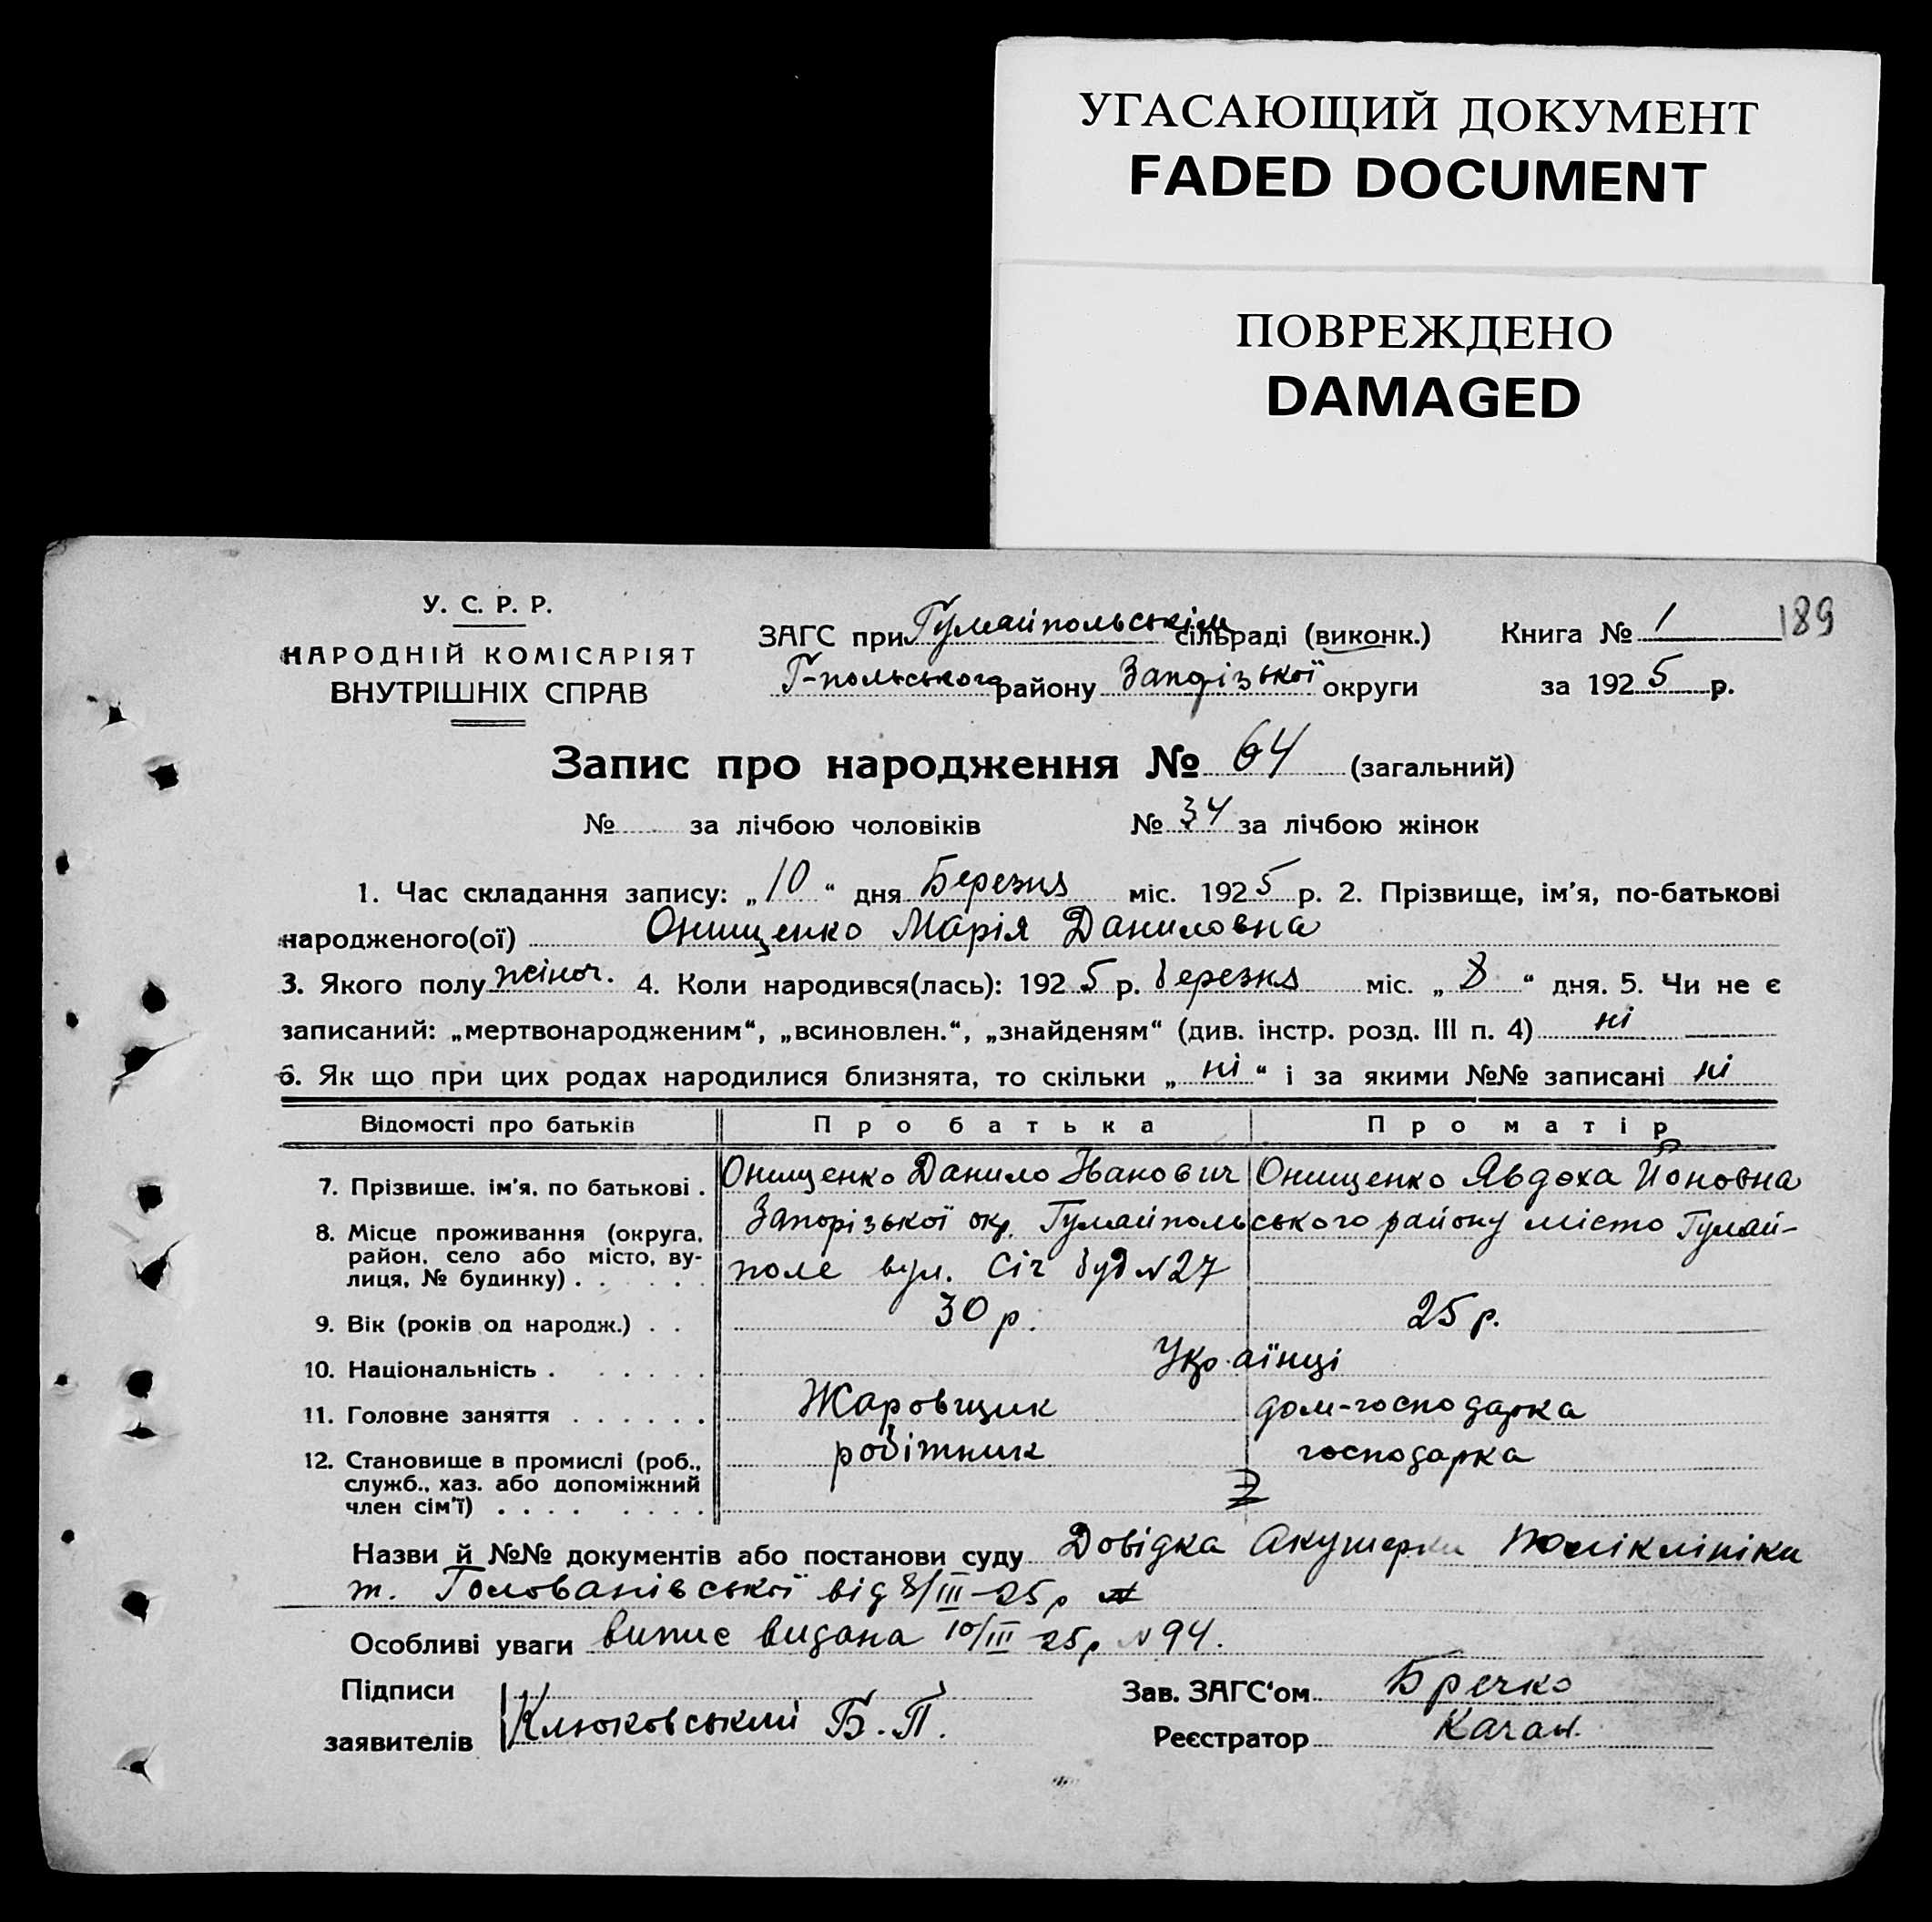 УГАСАЮЩИЙ ДОКУМЕНТ
FADED DOCUMENT
ПОВРЕЖДЕНО
DAMAGED
У. С. Р. Р.
НАРОДНІЙ КОМІСАРІЯТ
ВНУТРІШНІХ СПРАВ
ЗАГС при Гумайпольськім сільраді (виконк.)
Г-польського району Запорізької округи
Книга № 1 189
за 1925 р.
Запис про народження № 64 (загальний)
№ за лічбою чоловіків № 34 за лічбою жінок
1. Час складання запису: „10“ дня Березня міс. 1925 р. 2. Прізвище, ім'я, по-батькові
народженого(ої) Онищенко Марія Даниловна
3. Якого полу жіноч. 4. Коли народився(лась): 1925 р. березня міс. „8“ дня. 5. Чи не є
записаний: „мертвонародженим“, „всиновлен.“, „знайденям“ (див. інстр. розд. III п. 4) ні
6. Як що при цих родах народилися близнята, то скільки „ні“ і за якими №№ записані ні
Відомості про батьків Про батька Про матір
7. Прізвище, ім'я, по батькові . Онищенко Данило Іванович Онищенко Явдоха Йоновна
8. Місце проживання (округа, район, село або місто, вулиця, № будинку) . . . . . Запорізької окр. Гумайпольського району місто Гумай-
поле вул. Січ буд №27
9. Вік (років од народж.) . . 30 р. 25 р.
10. Національність . . . . . . Українці
11. Головне заняття . . . . . . Жаровщик дом-господарка
12. Становище в промислі (роб., служб., хаз. або допоміжний член сім'ї) . . . . . . . . робітник господарка
Назви й №№ документів або постанови суду Довідка Акушерки Поликлініки
т. Голованівської від 8/III-25 р
Особливі уваги випис видана 10/III-25 р №94.
Підписи
заявителів Клюковський Б. П.
Зав. ЗАГС‘ом Бречко
Реєстратор Качан.